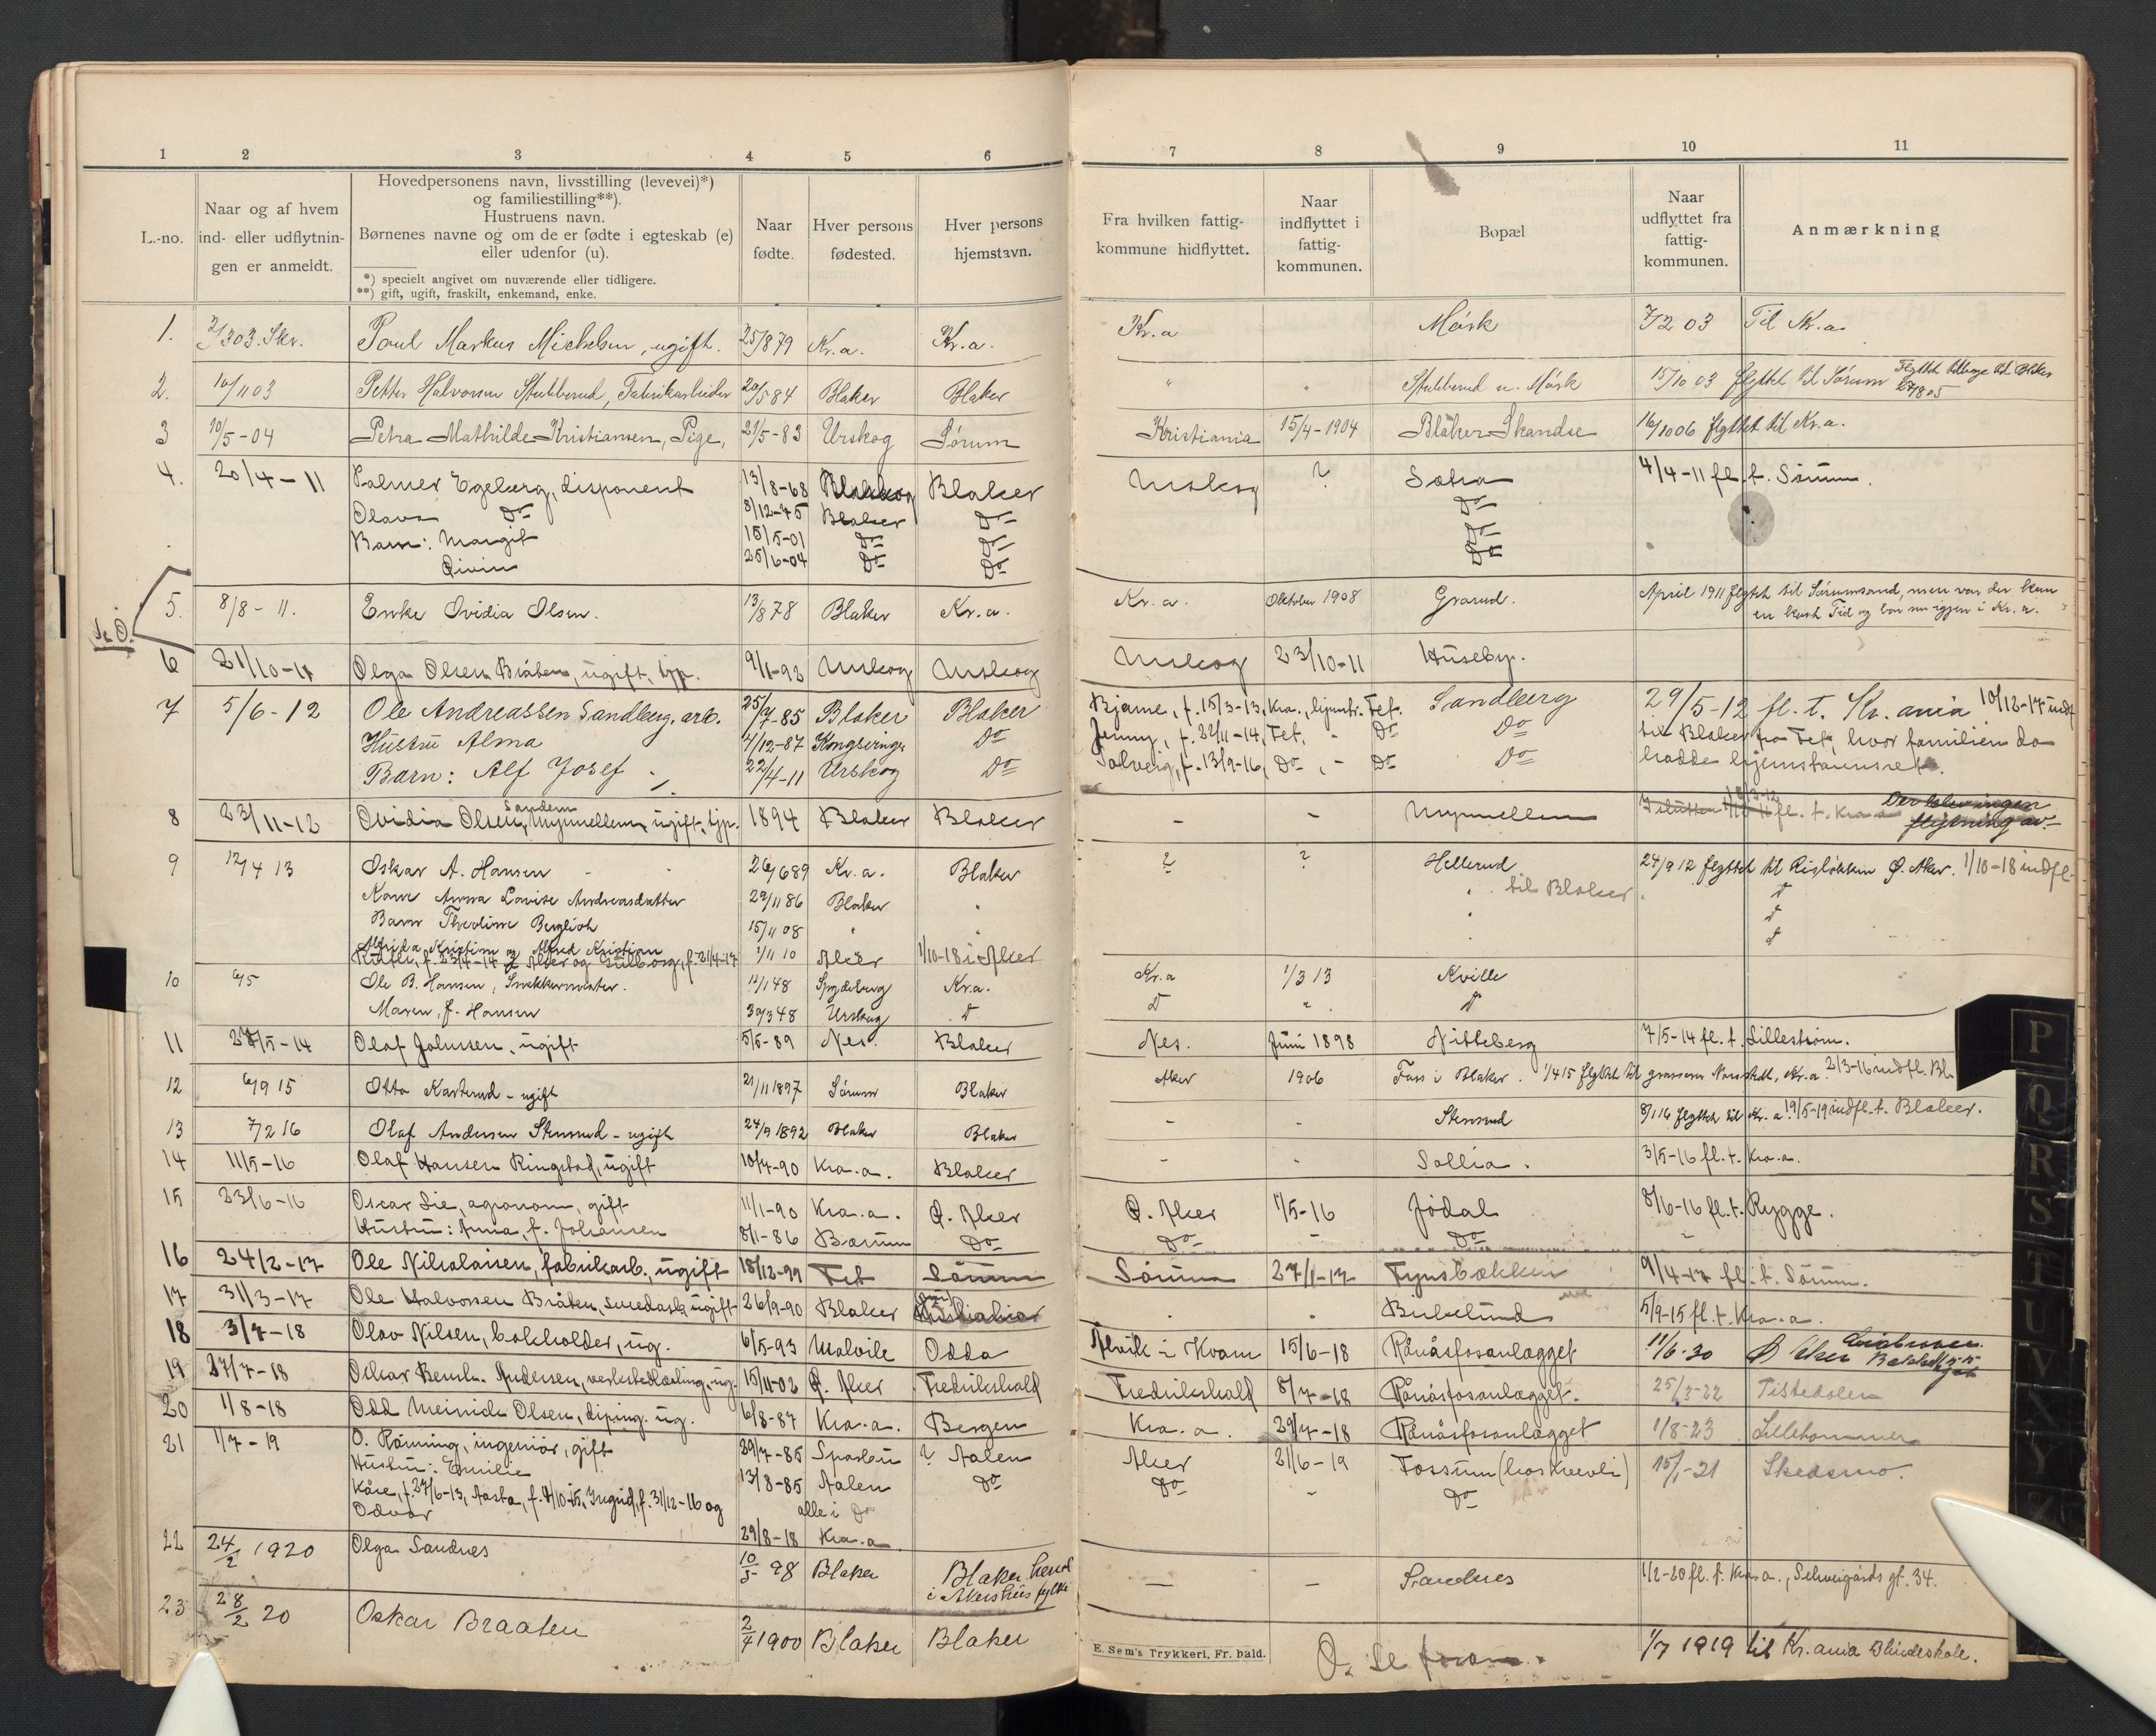 1 2 3 4 5 6 7 8 9 10 11
L.-no.
Naar og af hvem
ind- eller udflytnin-
gen er anmeldt.
Hovedpersonens navn, livsstilling (levevei)*)
og familiestilling**).
Hustruens navn.
Børnenes navne og om de er fødte i egteskab (e)
eller udenfor (u).
*) specielt angivet om nuværende eller tidligere.
**) gift, ugift, fraskilt, enkemand, enke.
Naar
fødte.
Hver persons
fødested.
Hver persons
hjemstavn.
Fra hvilken fattig-
kommune hidflyttet.
Naar
indflyttet i
fattig-
kommunen.
Bopæl
Naar
udflyttet fra
fattig-
kommunen.
Anmærkning
1. 2/3 03. Skr. Poul Markus Michelsen, ugift. 25/8 79 Kr.a. Kr.a. Kr.a Mørk 7/2 03 Til Kr.a.
2. 10/11 03 Petter Halvorsen Stubberud, Fabrikarbeider 20/5 84 Blaker Blaker " " Stubberud u. Mørk 15/10 03 flyttet til Sørum Flyttet tilbage til Blaker
27/8 05
3 10/5-04 Petra Mathilde Kristiansen, Pige, 21/5-83 Urskog Sørum Kristiania 15/4-1904 Blaker Skandse 16/10 06 flyttet til Kr.a.
4. 20/4-11 Palmer Egeberg, disponent 13/8-68 Blaker Urskog ? Sætra 4/4-11 fl. t. Sørum.
Olava Do 8/12-75 Blaker Do Do
Barn: Margit 15/5-01 Do Do Do
Eivin 25/6-04 Do Do Do
Se O.
5. 8/8-11. Enke Ovidia Olsen. 13/8 78 Blaker Kr.a. Kr.a. Oktober 1908 Grarud. April 1911 flyttet til Sørumsand, men var der kun
en kort Tid og bor nu igjen i Kr.a.
6 21/10-11 Olga Olsen Bråten, ugift, tjp. 9/1-92 Urskog Urskog Urskog 23/10-11 Huseby.
7 5/6-12 Ole Andreassen Sandberg, arb. 25/7-85 Blaker Blaker Bjarne, f. 15/3-13, Kra., hjemst. Fet. Sandberg 29/5-12 fl. t. Kr.ania 10/12-17 indf.
Hustru Alma 4/12-87 Kongsvinger Do Jenny, f. 22/11-14, Fet, - Do Do til Blaker fra Fet, hvor familien da
Barn: Alf Josef 22/4-11 Urskog Do Solveig, f. 13/9-16, Do, - Do Do hadde hjemstavnsret.
8 23/11-12 Ovidia Olsen Sanden, Mynnellem, ugift, tjp. 1894 Blaker Blaker - - Mynnellem fl. t. Kra.a
flytning av
9 12/4 13 Oskar A. Hansen 26/6 89 Kr.a. Blaker ? ? Hellerud 24/9 12 flyttet til Risløkken Ø. Aker. 1/10-18 indfl.
Kone Anna Lovise Andreasdatter 29/11 86 Blaker " til Blaker.
Barn Theoline Bergliot 15/11 08 "
Alfrida Kristine og Alfred Kristian 1/11 10 Aker 1/10-18 i Aker
10 6/5 Ole B. Hansen, Snekkermester. 12/1 48 Spydeberg Kr.a. Kr.a 1/3 13 Kville
Maren, f. Hansen 30/3 48 Urskog D D " D
11 27/5-14 Olaf Johnsen, ugift 5/5-89 Nes. Blaker Nes. Juni 1898 Nitteberg 7/5-14 fl. t. Lillestrøm.
12 6/9 15 Otto Karterud - ugift 21/11 1897 Sørum Blaker Aker 1906 Foss i Blaker. 1/4 15 flyttet til grosserer Kr.a. 2/3-16 indfl. Bl.
13 7/2 16 Olaf Andersen Stensrud - ugift 24/9 1892 Blaker Blaker - - Stensrud 8/1 16 flyttet til Kr.a. 19/5-19 indfl. t. Blaker.
14 11/5-16 Olaf Hansen Ringstad, ugift 10/7-90 Kra.a. Blaker - - Sollia. 3/5-16 fl. t. Kra.a.
15 23/6-16 Oscar Lie, agronom, gift 11/1-90 Kra.a. Ø. Aker Ø. Aker 1/5-16 Jødal 8/6-16 fl. t. Rygge.
Hustru: Anna, f. Johansen 8/1-86 Bærum Do Do - Do
16 24/2-17 Ole Nikolaisen, fabrikarb., ugift 18/12-99 Fet Sørum Sørum 27/1-17 Tynsbækken 9/4-17 fl. t. Sørum.
17 31/3-17 Ole Halvorsen Bråten, ugift 26/9-90 Blaker Kristiania . Birkelund 5/9-15 fl. t. Kra.a.
18 3/7-18 Olav Nilsen, bokholder, ug. 6/5-93 Malvik Odda Ålvik i Kvam 15/6-18 Rånåsfosanlægget 11/6-30 Ø Aker
19 27/7-18 Oskar Bernh. Andersen, verkstedlærling, ug. 15/11-02 Ø. Aker Fredrikshald Fredrikshald 8/7-18 Rånåsfosanlægget. 25/3-22 Tistedalen
20 1/8-18 Odd Meinich Olsen, diping. ug. 6/8-87 Kra.a. Bergen Kra.a. 29/7-18 Rånåsfosanlægget 1/8-23 Lillehammer
21 1/7-19 O. Röming, ingeniör, gift 29/7-85 Sparbu ? Aalen Aker 21/6-19 Fossum (hos Kvevli) 15/1-21 Skedsmo.
Hustru: Emilie 13/8-85 Aalen Do Do - Do
Kåre, f. 27/6-13, Aasta, f. 4/10-15, Ingrid, f. 31/12-16 og alle i Do
Odvar 29/8-18 Kra.a.
22 24/2 1920 Olga Sandnes 10/5 98 Blaker Blaker herred
i Akershus fylke — — Sandnes 1/2-20 fl. t. Kra.a., Schweigårds gt. 34.
23 28/2 20 Oskar Braaten 2/4 1900 Blaker Blaker 1/7 1919 til Kr.ania Blindeskole.
E. Sem's Trykkeri, Fr. hald.
O. Se foran.
P
Q
R
S
T
U
V
X
Y
Z